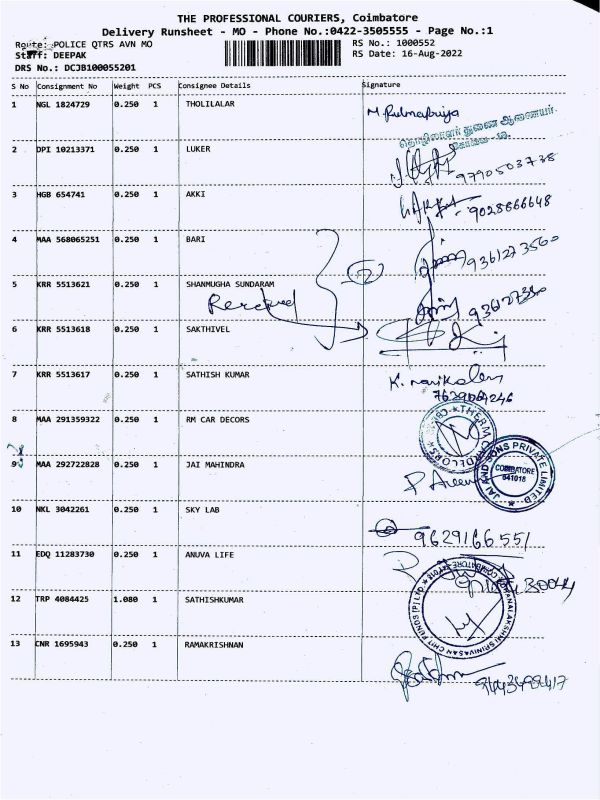 THE PROFESSIONAL COURIERS, Coimbatore
Delivery Runsheet - MO - Phone No.:0422-3505555 - Page No.:1
Route: POLICE QTRS AVN MO
RS No.: 1000552
Staff: DEEPAK
RS Date: 16-Aug-2022
DRS No.: DCJB100055201
S No Consignment No Weight PCS Consignee Details Signature
1 NGL 1824729 0.250 1 THOLILALAR
தொழிலாளர் துணை ஆணையர்
2 DPI 10213371 0.250 1 LUKER
9790503738
3 HGB 654741 0.250 1 AKKI
9028666648
4 MAA 568065251 0.250 1 BARI
9361273560
5 KRR 5513621 0.250 1 SHANMUGHA SUNDARAM
Received
6 KRR 5513618 0.250 1 SAKTHIVEL
7 KRR 5513617 0.250 1 SATHISH KUMAR
8 MAA 291359322 0.250 1 RM CAR DECORS
9 MAA 292722828 0.250 1 JAI MAHINDRA
JAI AND SONS PRIVATE LIMITED
COIMBATORE
641018
10 NKL 3042261 0.250 1 SKY LAB
9629166551
11 EDQ 11283730 0.250 1 ANUVA LIFE
12 TRP 4084425 1.080 1 SATHISHKUMAR
13 CNR 1695943 0.250 1 RAMAKRISHNAN